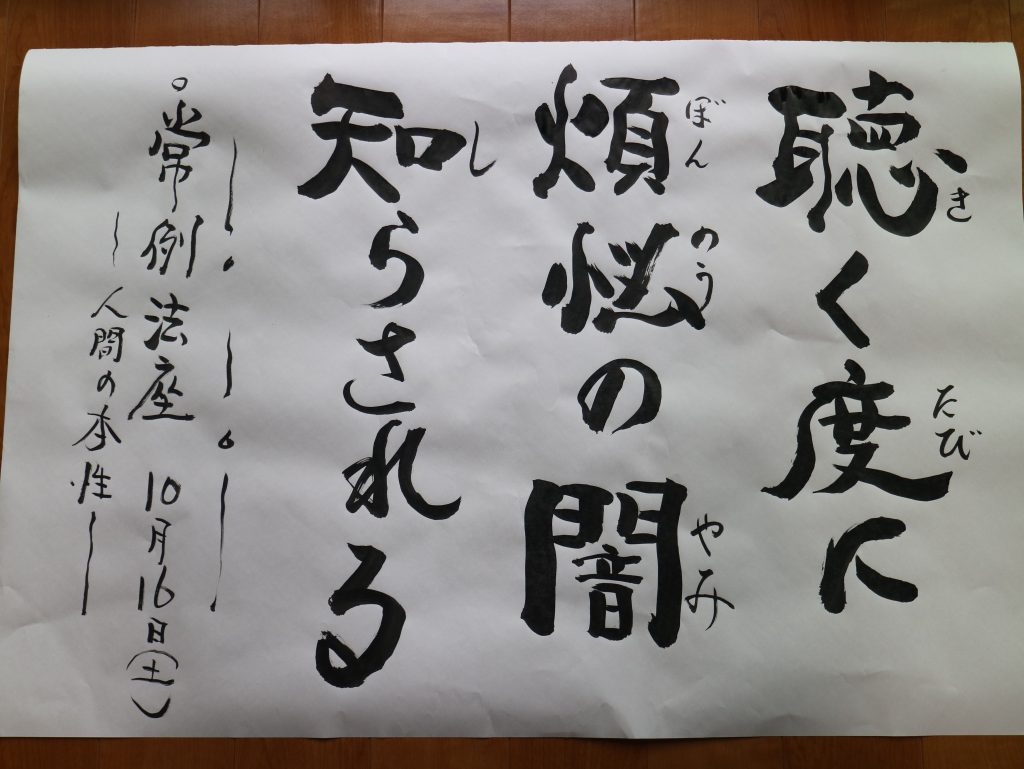 聴く度に
き
たび
煩悩の闇
ぼんのう
やみ
知らされる
し
○常例法座 10月16日(土)
―人間の本性―